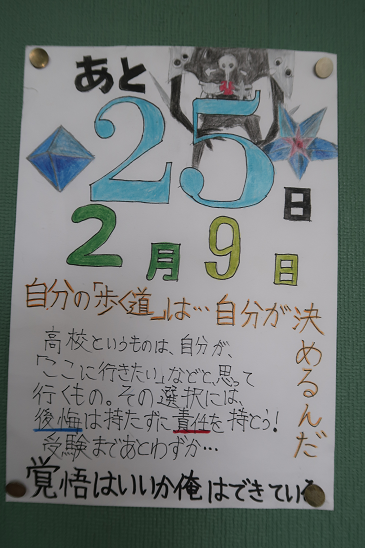 あと
25日
2月9日
自分の「歩く道」は…自分が決めるんだ
高校というものは、自分が、
「ここに行きたい」などと思って
行くもの。その選択には、
後悔は持たずに責任を持とう!
受験まであとわずか…
覚悟はいいか俺はできている